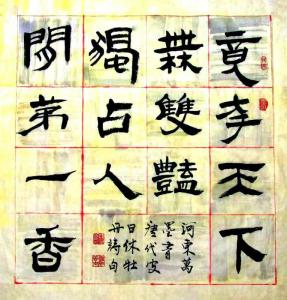 竞夸天下
無雙豔
獨占人
間第一香
河東萬
墨書
唐代皮
日休牡
丹詩句